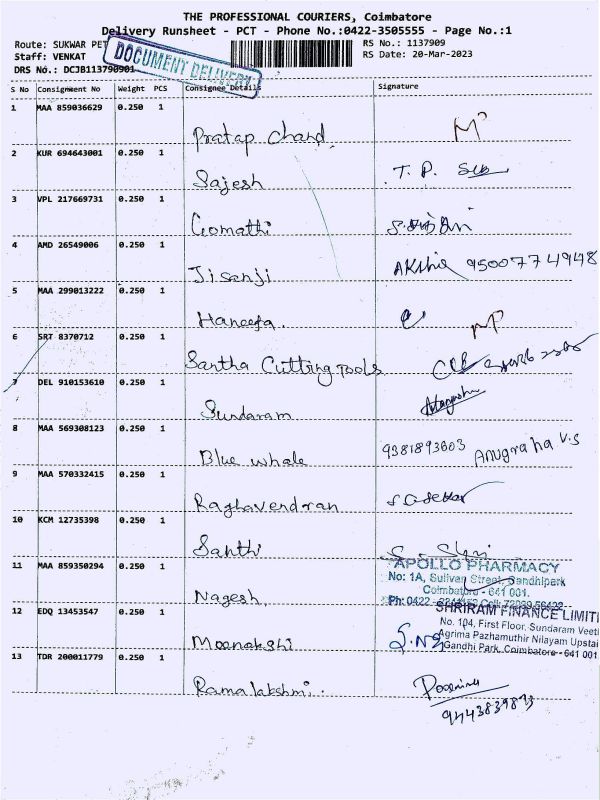 THE PROFESSIONAL COURIERS, Coimbatore
Delivery Runsheet - PCT - Phone No.:0422-3505555 - Page No.:1
Route: SUKWAR PET
RS No.: 1137909
Staff: VENKAT
RS Date: 20-Mar-2023
DOCUMENT DELIVERY
DRS No.: DCJB113790901
S No Consignment No Weight PCS Consignee Details Signature
1 MAA 859036629 0.250 1
Pratap chand
2 KUR 694643001 0.250 1
Sajesh T. P.
3 VPL 217669731 0.250 1
Gomathi
4 AMD 26549006 0.250 1
Jisanji 9500774948
5 MAA 299013222 0.250 1
Haneefa.
6 SRT 8370712 0.250 1
Santha Cutting Tools
7 DEL 910153610 0.250 1
Sundaram
8 MAA 569308123 0.250 1
Blue whale 9381893603 Anugraha V.S
9 MAA 570332415 0.250 1
Raghavendran
10 KCM 12735398 0.250 1
Santhi
11 MAA 859350294 0.250 1
APOLLO PHARMACY
No: 1A, Sulivan Street, Gandhipark
Coimbatore - 641 001.
Nagesh
12 EDQ 13453547 0.250 1
SHRIRAM FINANCE LIMITE
No. 104, First Floor, Sundaram Veeth
Agrima Pazhamuthir Nilayam Upstai
Gandhi Park, Coimbatore - 641 001
Meenakshi
13 TDR 200011779 0.250 1
Ramalakshmi.